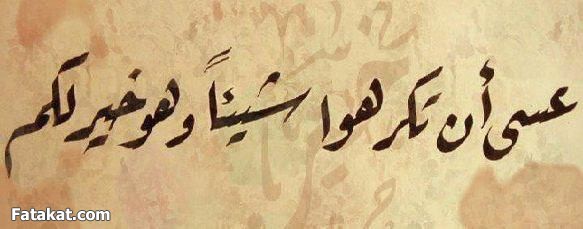 عسى أن تكرهوا شيئاً وهو خير لكم
Fatakat.com